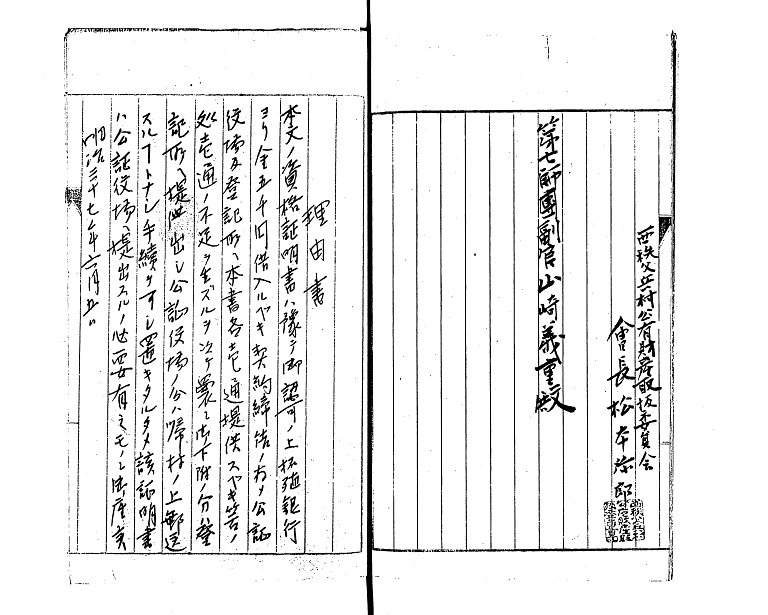 西秩父兵村公有財産取扱委員会
會長松本弥郎
第七師團副官山崎義重殿
理由書
本文ノ資格証明書ハ豫テ御認可ノ上拓殖銀行
ヨリ金五千円借入ルヘキ契約締結ノ為メ公証
役場及登記所ヘ本書各壱通提供スヘキ筈ノ
処壱通ノ不足ヲ生ズルヲ次テ曩ニ御下附ノ分登
記所ヘ提出シ公証役場ノ分ハ帰村ノ上郵送
スルコトナシ手續ヲナシ置キタルタメ該証明書
ハ公証役場ヘ提出スルノ必要有之モノニ
明治三十七年六月五日